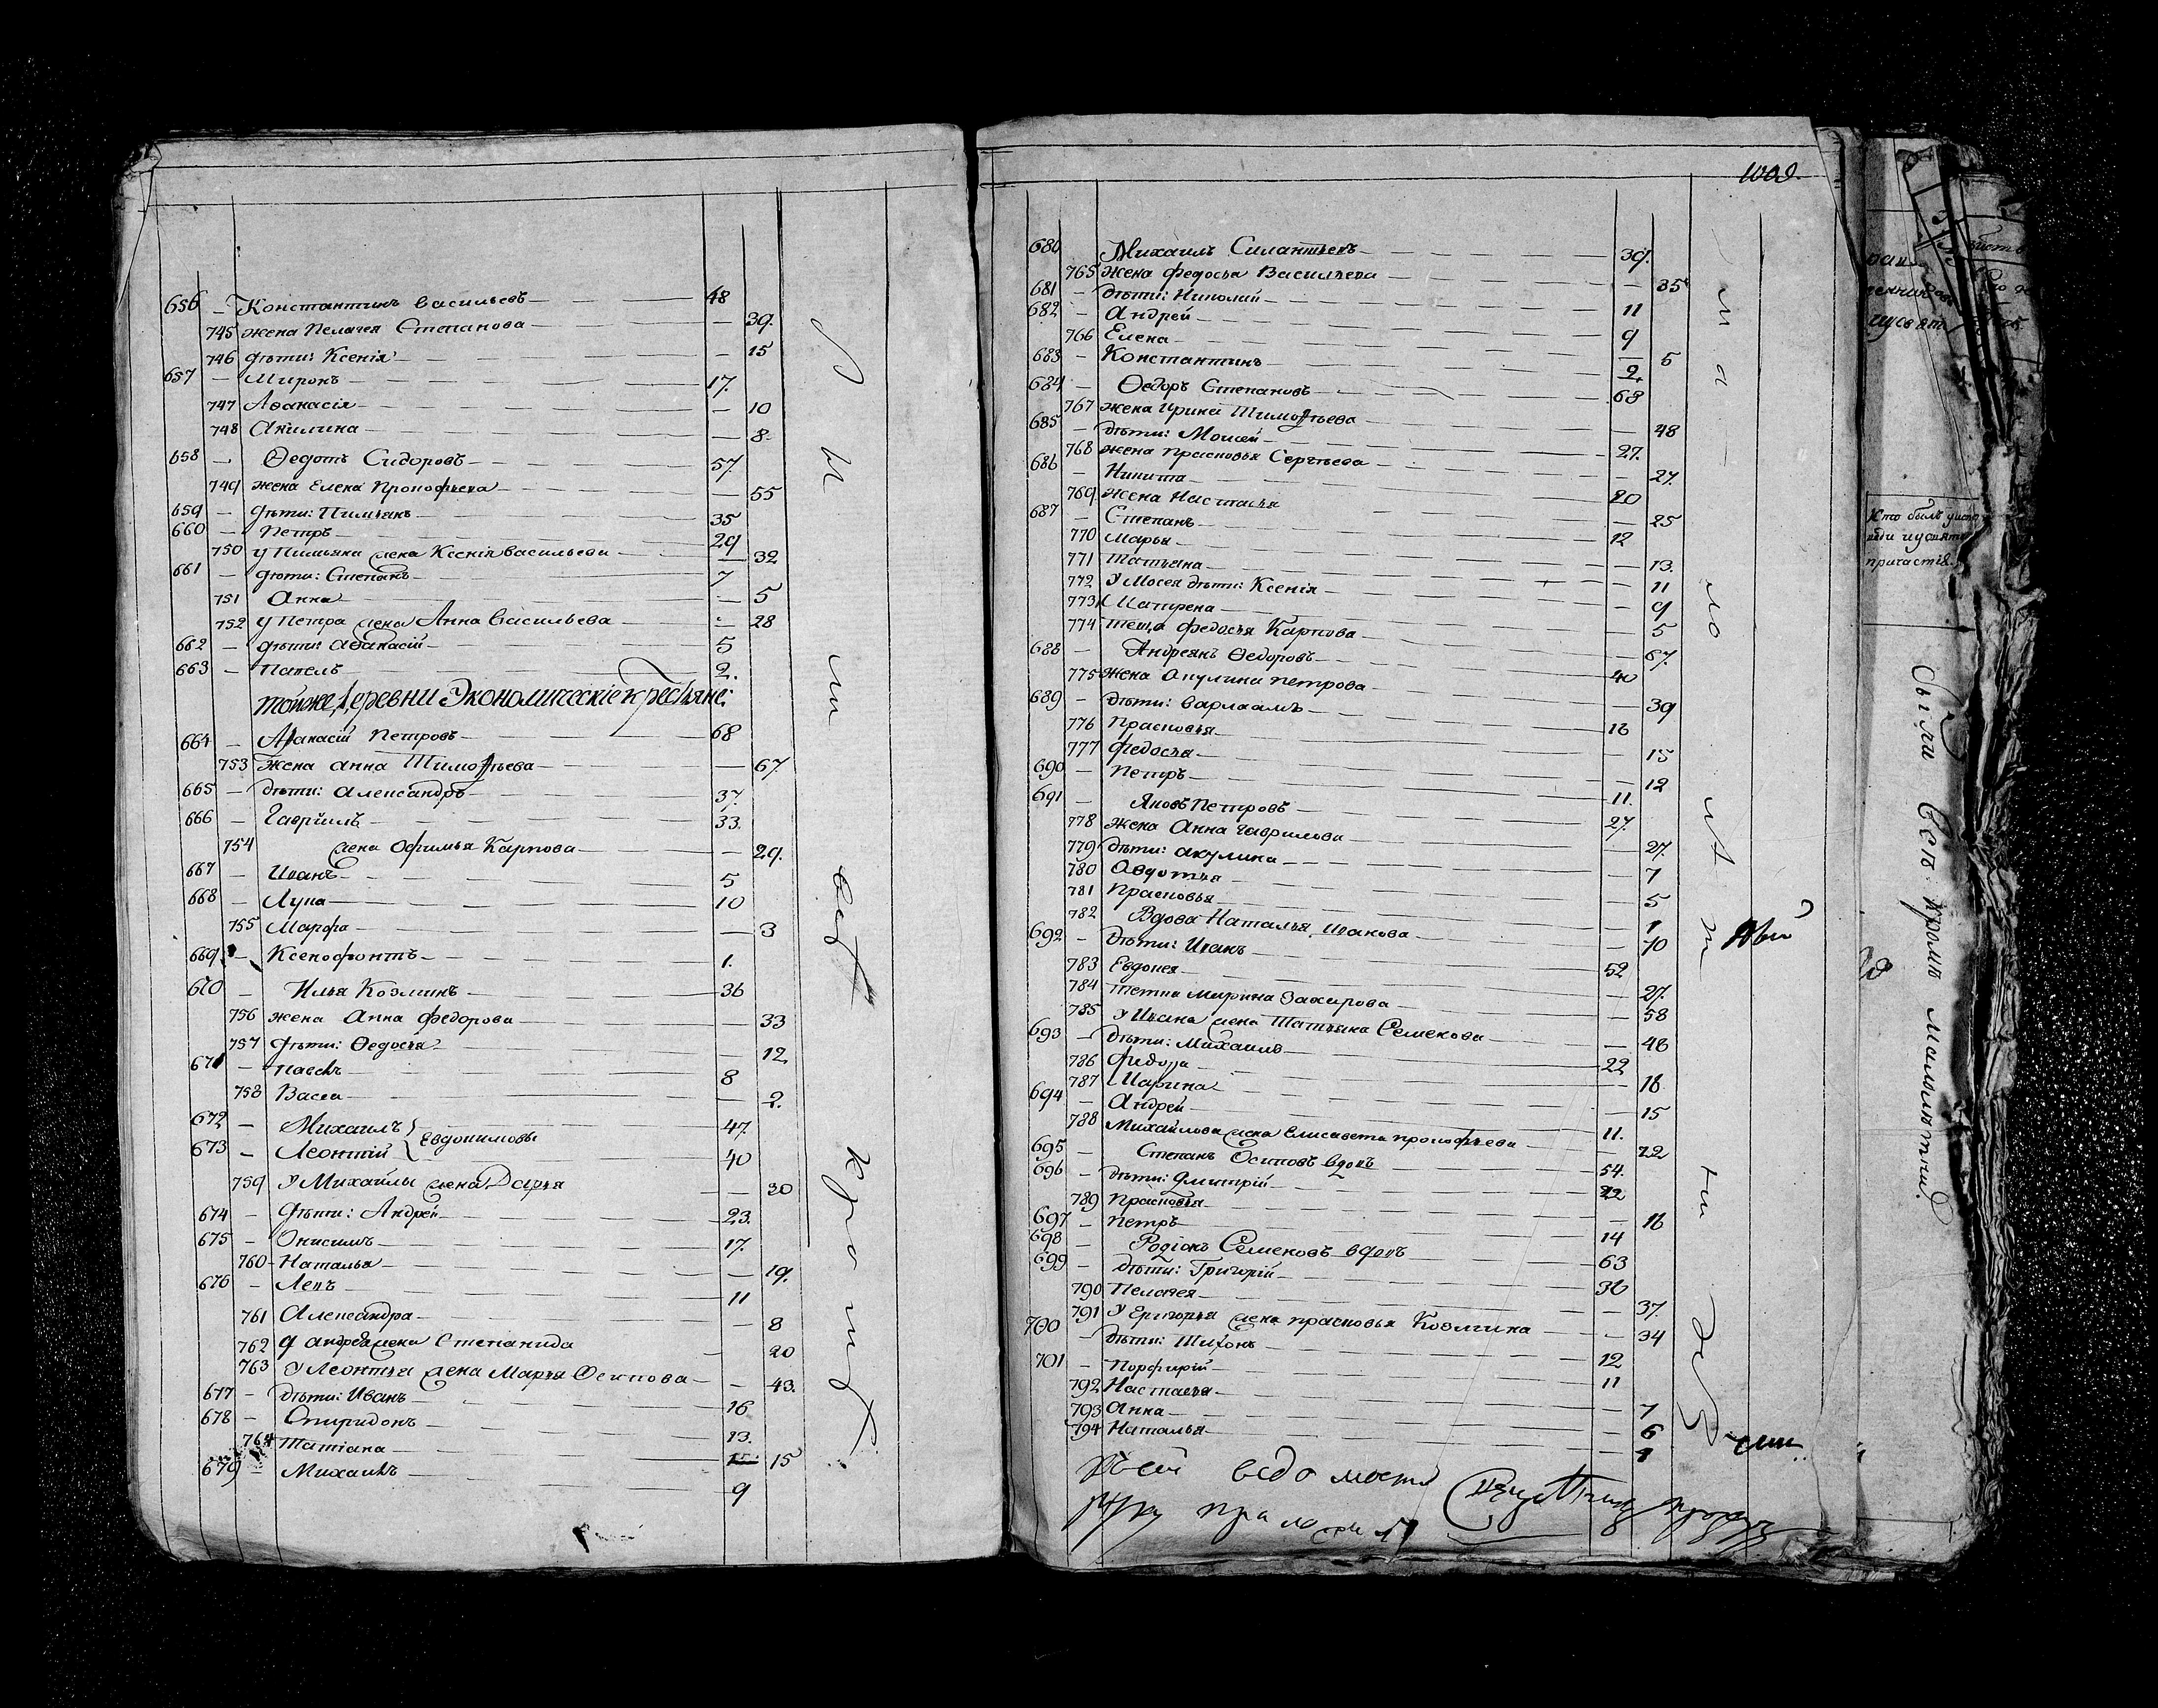 656 — Константинъ Васильевъ — 48
745 жена Пелагея Степанова — 39.
746 дѣти: Ксенія — 15
657 — Миронъ — 17.
747 Аѳанасія — 10
748 Акилина — 8.
658 — Ѳедотъ Сидоровъ — 57.
749 жена Елена Прокофьева — 55
659 — дѣти: Пимѣнъ — 35
660 — Петръ — 29
750 у Пимѣна жена Ксенія Васильева — 32
661 — дѣти: Степанъ — 7
751 Анна — 5
752 у Петра жена Анна Васильева — 28
662 — дѣти: Аѳанасій — 5
663 — Павелъ — 2.
тойже деревни Экономическіе крестьяне:
664 — Аѳанасій Петровъ — 68
753 жена Анна Тимоѳѣева — 67.
665 — дѣти: Александръ — 37.
666 — Гаврійлъ — 33.
754 жена Офимья Карпова — 29.
667 — Иванъ — 5
668 — Лука — 10
755 Марфа — 3
669 — Ксенофонтъ — 1.
670 — Илья Козминъ — 36
756 жена Анна Федорова — 33
757 дѣти: Ѳедосья — 12
671 — Павелъ — 8
758 Васса — 2.
672 — Михаилъ } Евдокимовы — 47.
673 — Леонтій — 40
759 у Михайлы жена Дарья — 30
674 — дѣти: Андрей — 23.
675 — Онисимъ — 17.
760 Наталья — 19.
676 — Левъ — 11
761 Александра — 8
762 у Андрея жена Степанида 20
763 у Леонтья жена Марья Осипова — 43.
677 — дѣти: Иванъ — 16
678 — Спиридонъ — 13.
764 Татіана — 15
679 — Михаилъ — 9
были всѣ кромѣ
1009.
680 Михаилъ Силантьевъ — 39.
765 жена Федосья Васильева — 35
681 — дѣти: Николай — 11
682 — Андрей — 9
766 Елена — 5
683 — Константинъ — 2.
684 — Ѳедоръ Степановъ — 68
767 жена Ирина Тимоѳѣева — 48
685 — дѣти: Моисей — 27.
768 жена Прасковья Сергѣева — 27.
686 — Никита — 20
769. жена Настасья — 25
687 — Степанъ — 12
770 Марья — 13.
771 Татьяна — 11
772 у Мосея дѣти: Ксенія — 9
773 Матрена — 5
774 теща Федосья Карпова — 67.
688 — Андреянъ Ѳедоровъ — 40
775 жена Акулина Петрова — 39
689 — дѣти: Варлаамъ — 16
776 Прасковья — 15
777 Федосья — 12
690 — Петръ — 11.
691 — Яковъ Петровъ — 27.
778 жена Анна Гаврилова — 27.
779 дѣти: Акулина — 7
780 Авдотья — 5
781 Прасковья — 1
782 Вдова Наталья Иванова — 70
692 — дѣти: Иванъ — 52
783 Евдокея — 27.
784 тетка Марина Захарова — 58
785 у Ивана жена Татьяна Семенова — 48
693 — дѣти: Михаилъ — 22
786 Федора — 16
787 Марина — 15
694 — Андрей — 11.
788 Михайлова жена Елисавета Прокофьева — 22
695 — Степанъ Осиповъ вдовъ — 54.
696 — дѣти: Дмитрій — 22
789 Прасковья — 16
697 — Петръ — 14
698 — Родіонъ Семеновъ вдовъ — 63
699 — дѣти: Григорій — 36
790 Пелагея — 37.
791 у Григорья жена Прасковья Козмина — 34
700 — дѣти: Тихонъ — 12
701 — Порфирій — 11
792 Настасья — 7
793 Анна — 6
794 Наталья — 1
малолѣтныхъ
Къ сей ведомости
Кто былъ
причастія.
были всѣ кромѣ малолѣтних